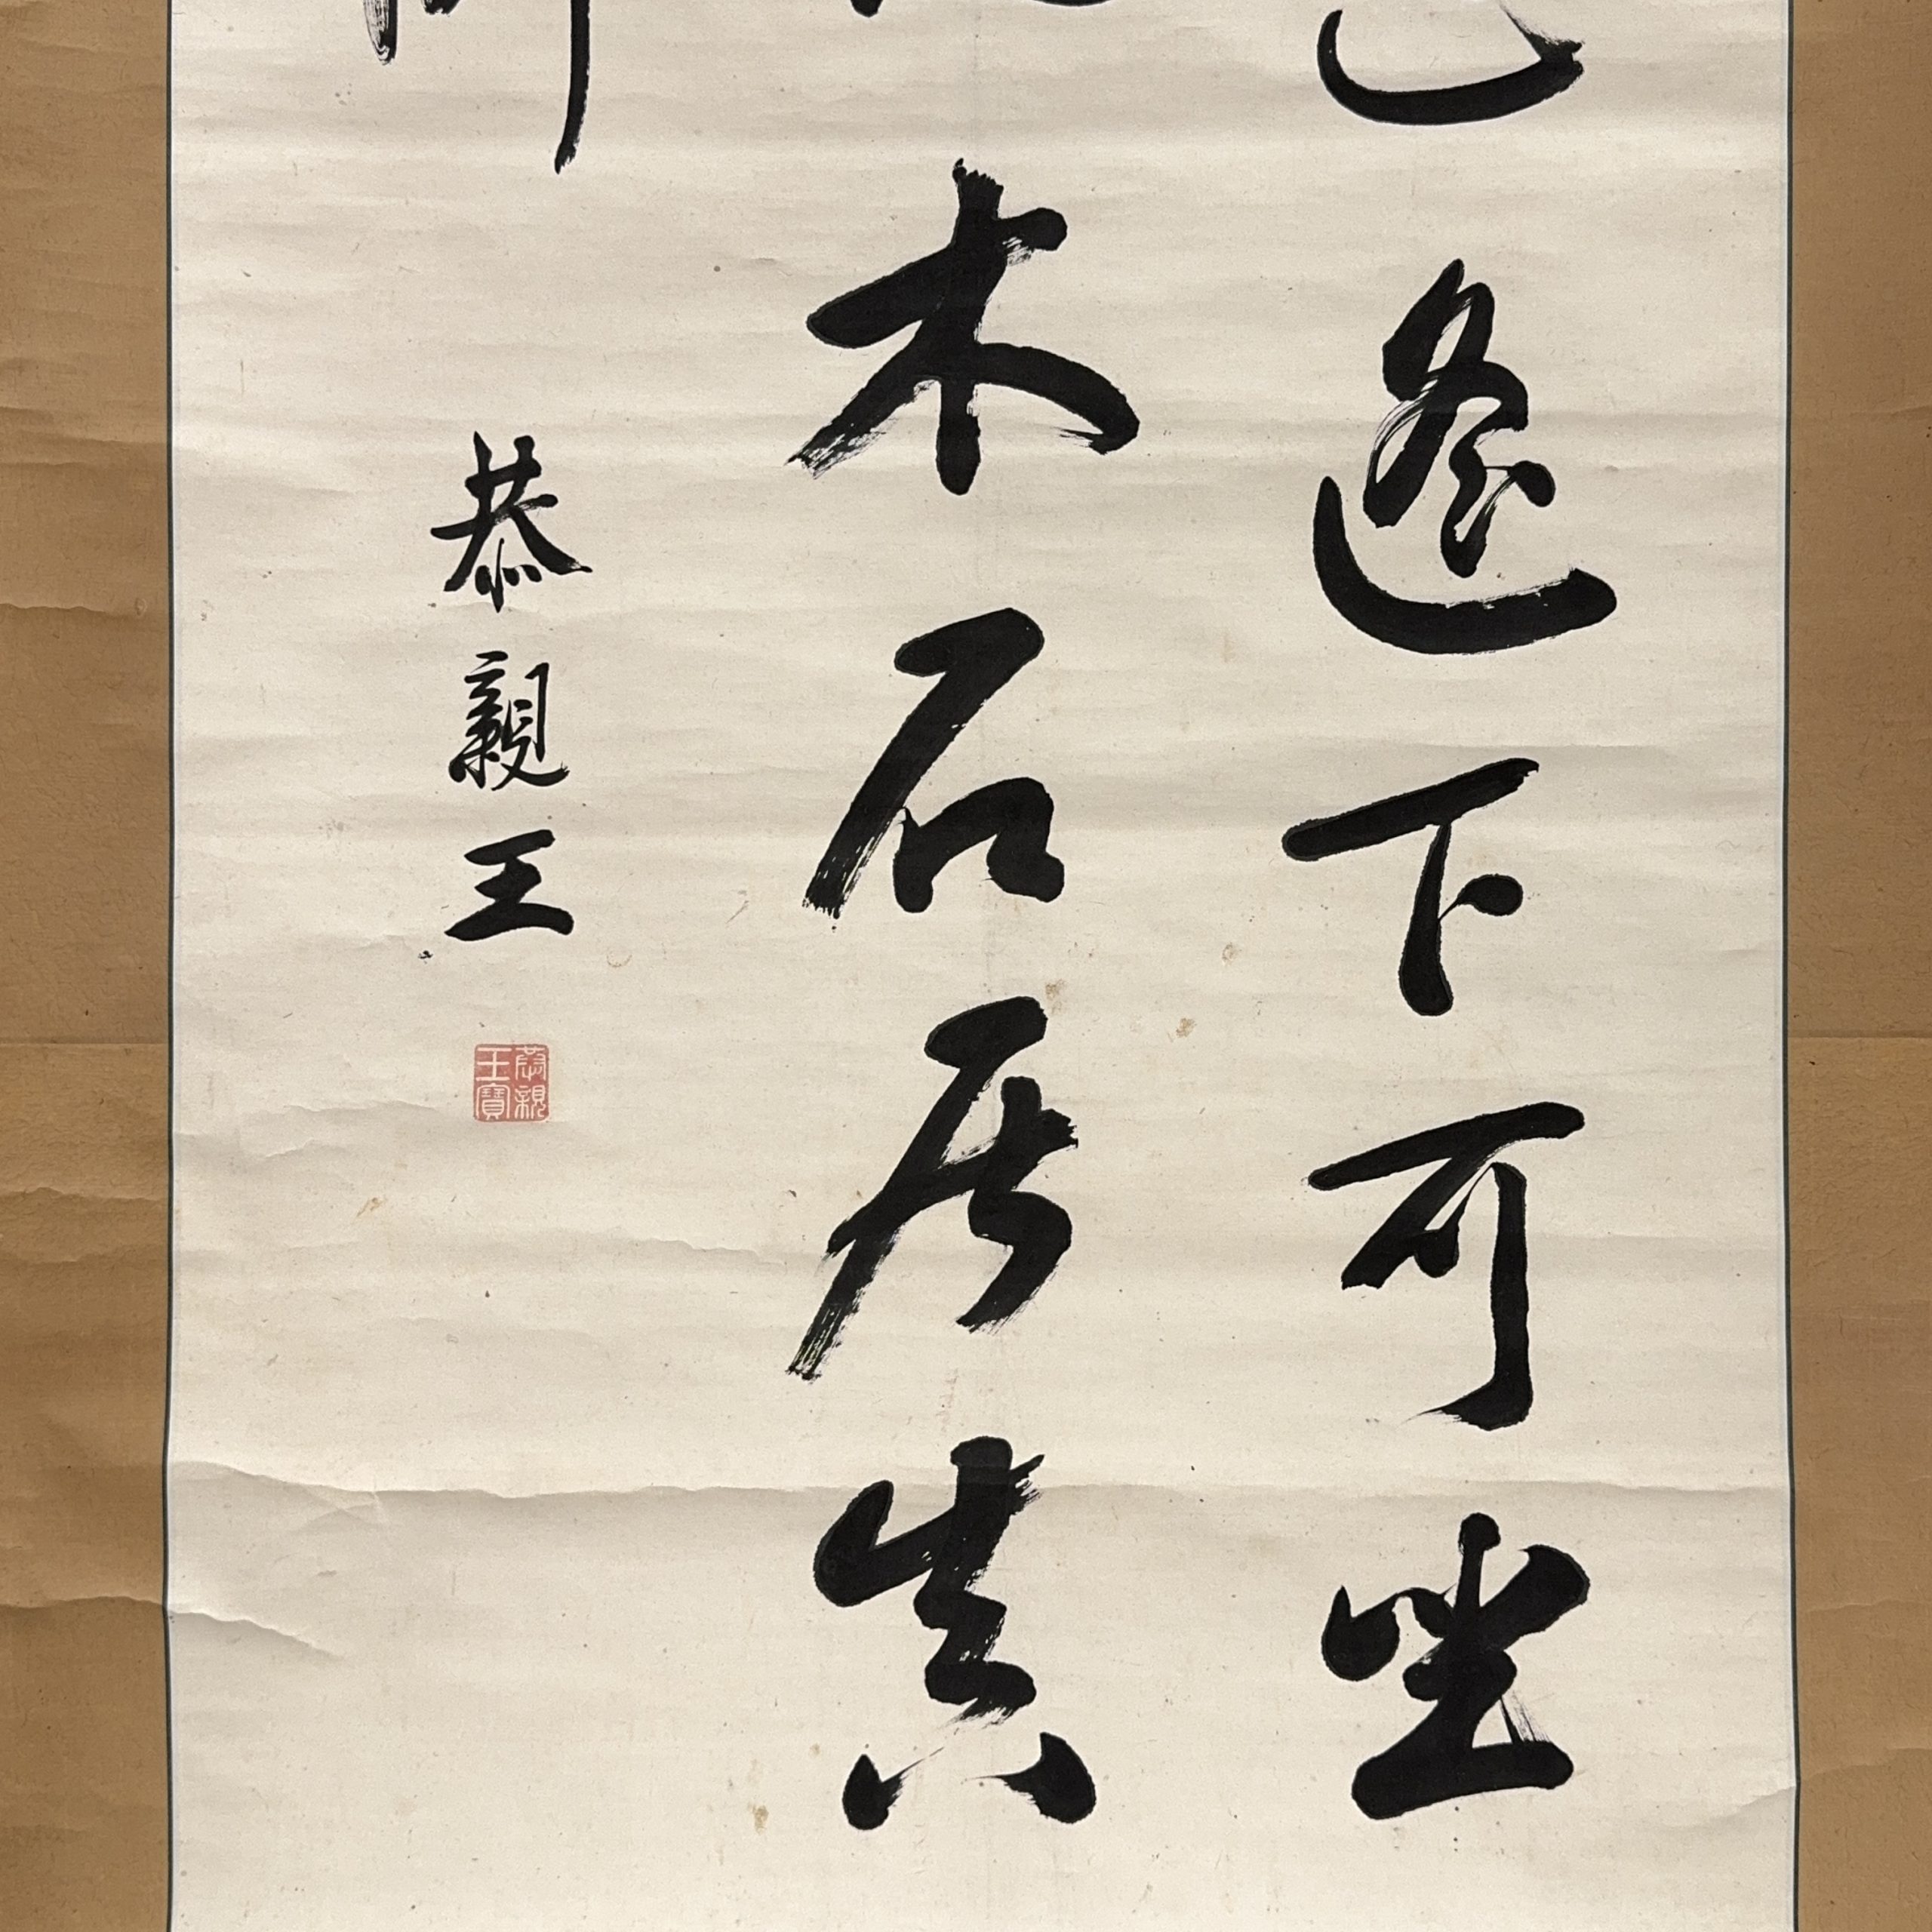 遙下可坐
木石居真
恭親王
恭親
王寶